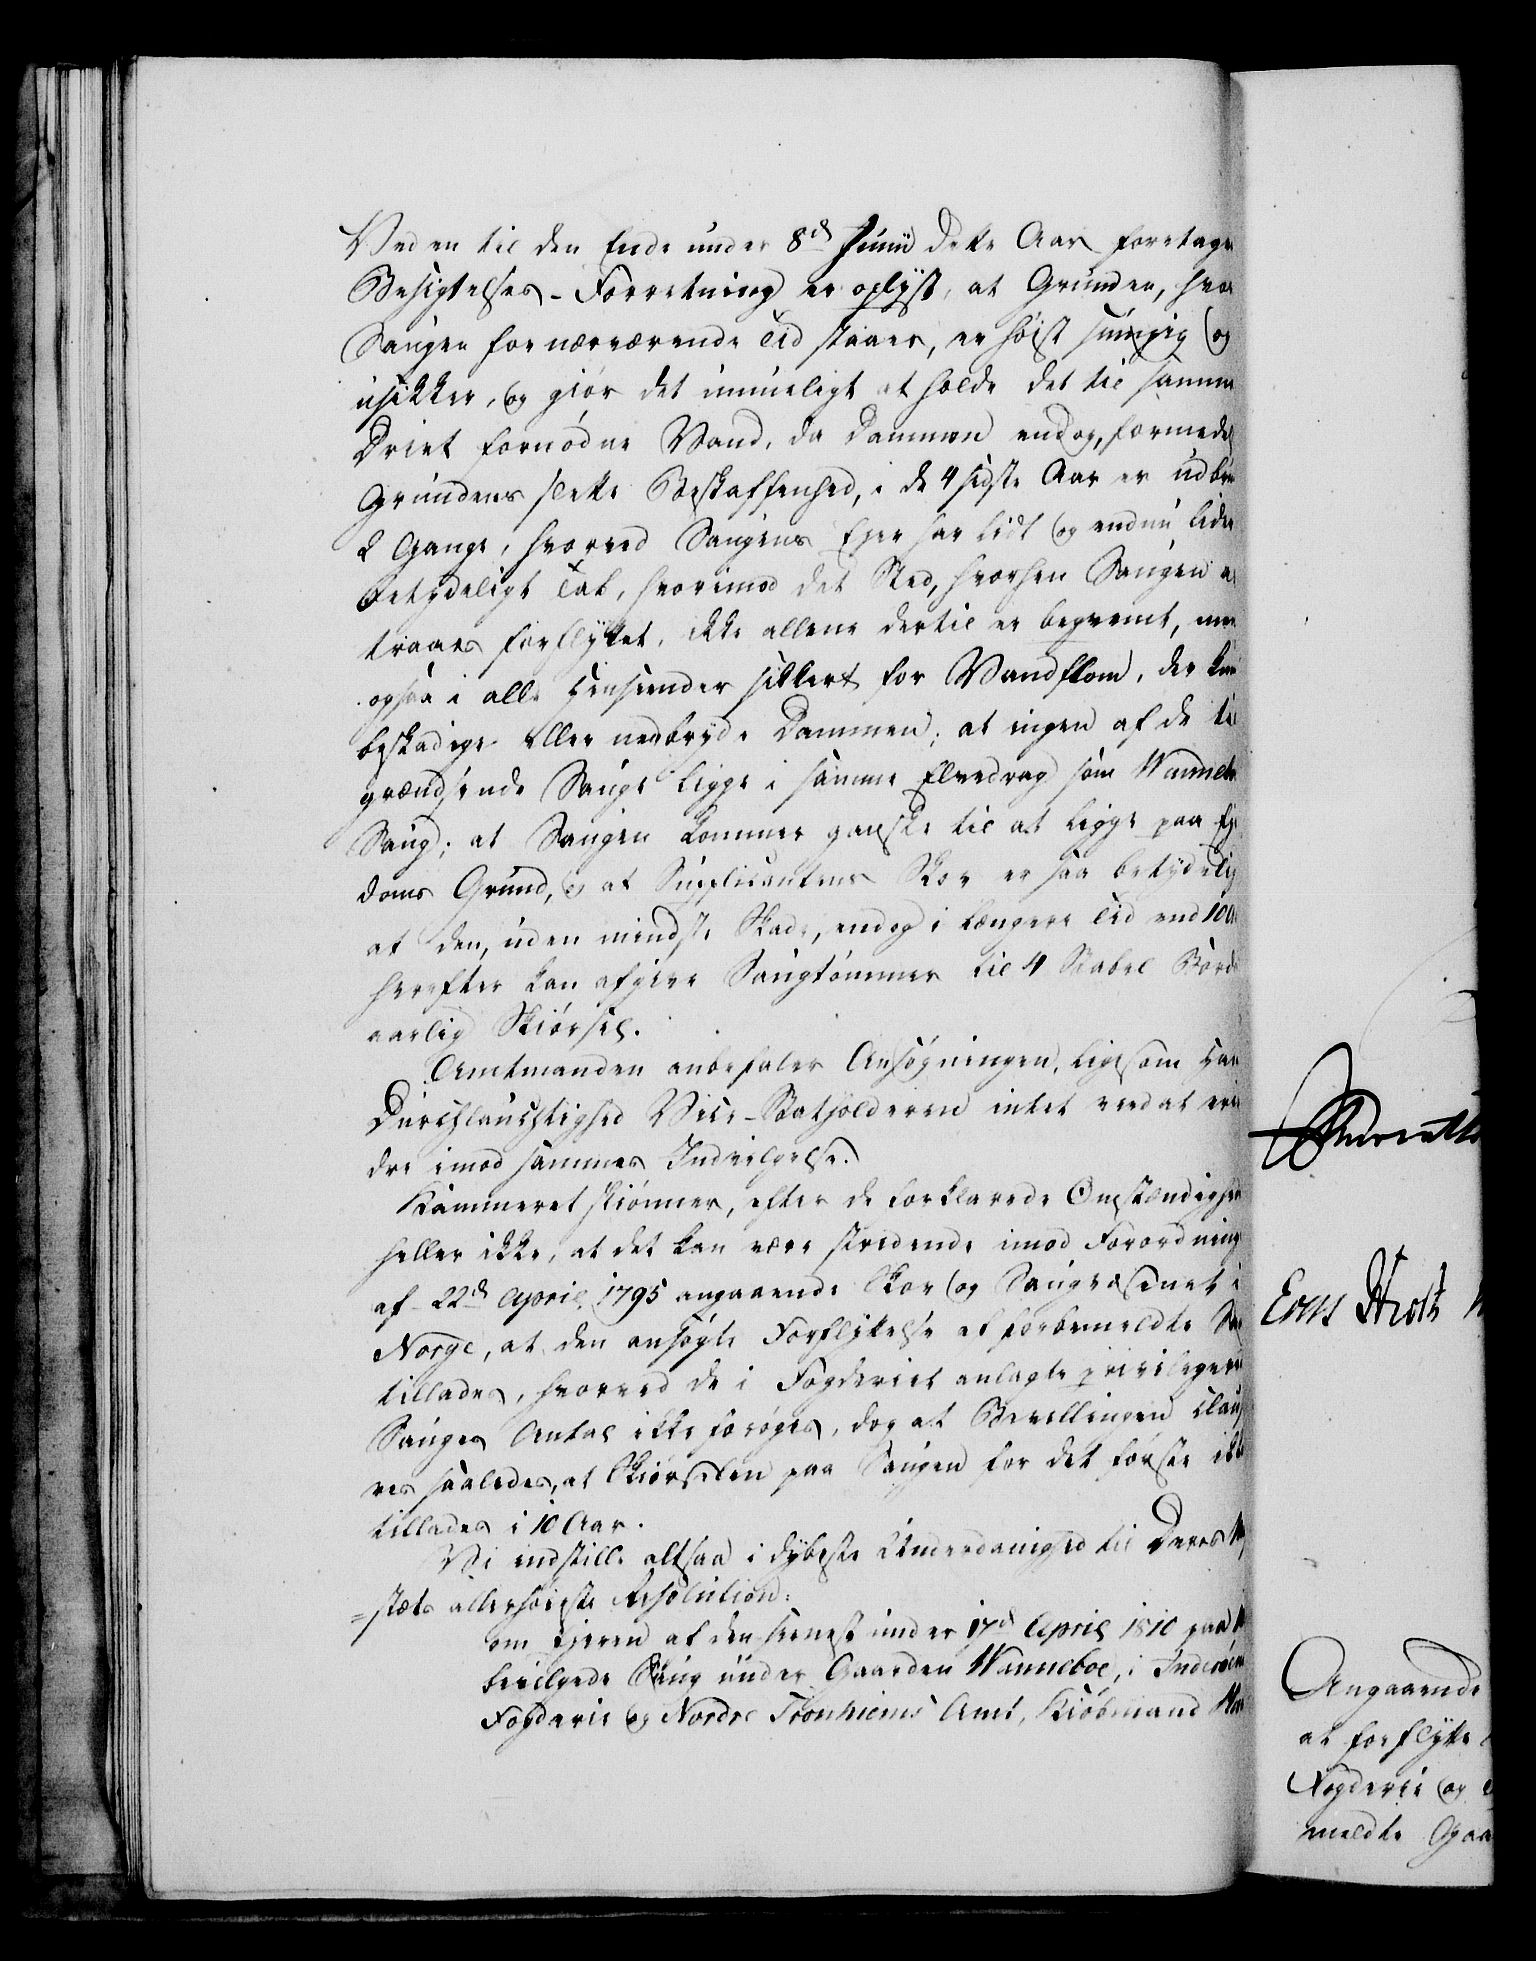 Ved en til den Ende under 8de Junii dette Aar foretage
Besigtelses-Forretning er oplyst, at Grunden, hvor
Saugen for nærværende Tid staaer, er høist sumpig og
usikker, og giør det umueligt at holde det til samme
Drivt fornødne Vand, da Dammen endog, formedel
Grundens slette Beskaffenhed, i de 4 sidste Aar er udbru
2 Gange, hvorved Saugens Ejer har lidt og endnu lider
betydeligt Tab, hvorimod det Sted, hvorhen Saugen a
traaes forflyttet, ikke allene dertil er beqvemt, men
ogsaa i alle Henseender sikkert for Vandflom, der kan
beskadige eller nedbryde Dammen; at ingen af de til
grændsende Sauge ligge i samme Elvedrag som Wannebo
Saug; at Saugen kommer ganske til at ligge paa Ej
doms Grund, og at Supplicantens Skov er saa betydelig
at den, uden mindste Skade, endog i længere Tid end 10 A
herefter kan afgive Saugtømmer til 4 Stabel Bord
aarlig Skiørsel.
Amtmanden anbefaler Ansøgningen, ligesom Han
Durchlauchtighed Vice-Statholderen intet veed at erin
dre imod sammes Indvilgelse.
Kammeret skiønner, efter de forklarede Omstændighed
heller ikke, at det kan være stridende imod Forordning
af 22de April 1795 angaaende Skov og Saugvæsenet i
Norge, at den ansøgte Forflyttelse af forbemeldte Sau
tillades, hvorved de i Fogderiet anlagte privilegere
Sauges Antal ikke forøges, dog at Bevillingen clau
res saaledes, at Skiørselen paa Saugen for det første ikk
tillades i 10 Aar.
Vi indstille altsaa i dybeste Underdanighed til Deres M
=stæts allerhøieste Resolution:
om Ejeren af den seenest under 17de April 1810 paa
bevilgede Saug under Gaarden Wanneboe, i Inderøen
Fogderie og Nordre Tronhiems Amt, Kiøbmand
Angaaende
at forflytte
Fogderie og
meldte Gaa